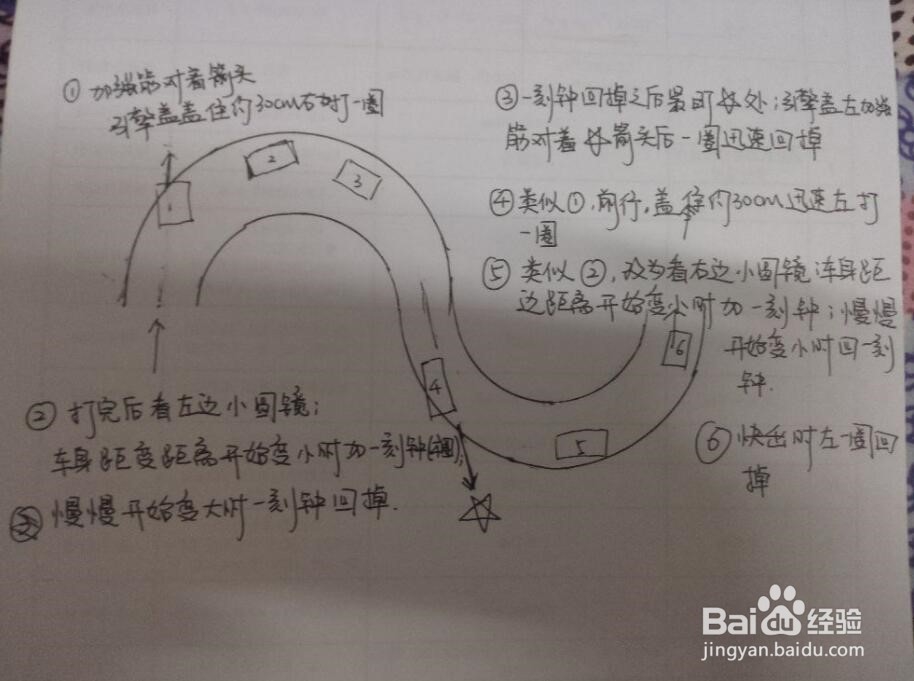 ① 加强筋对着箭头
引擎盖盖住约30cm右打一圈
③一刻钟回掉之后累即处;引擎盖左加强
筋对着箭头后一圈迅速回掉
④类似①,前行,盖住约30cm迅速左打
一圈
⑤类似②,改为看右边小圆镜;车身距
边距离开始变小时加一刻钟;慢慢
开始变小时回一刻
钟.
⑥快出时左一圈回
掉
②打完后看左边小圆镜;
车身距变距离开始变小时加一刻钟
慢慢开始变大时一刻钟回掉.
1
2
3
4
5
6
Baidu经验
jingyan.baidu.com